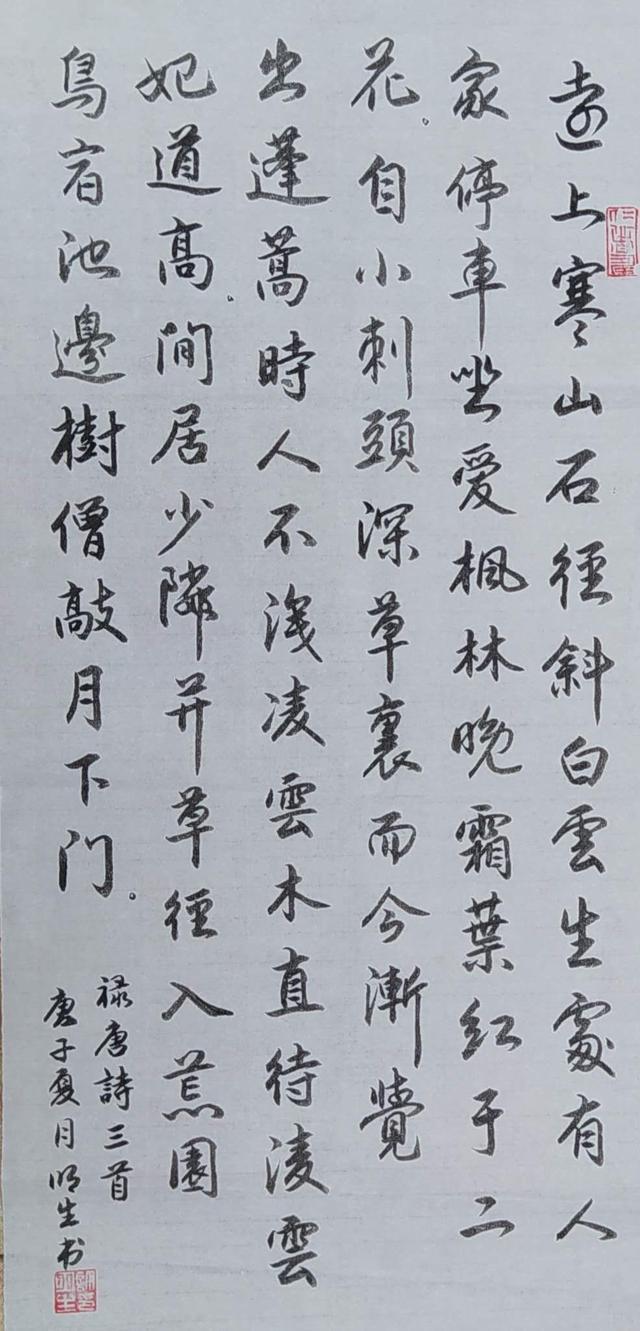 遠上寒山石徑斜白雲生處有人
家停車坐愛楓林晚霜葉红于二
花。自小刺頭深草裏而今漸覺
出蓬蒿時人不識凌雲木直待凌雲
始道高。閒居少隣并草徑入荒園
鳥宿池邊樹僧敲月下门。
禄唐詩三首
庚子夏月明生书